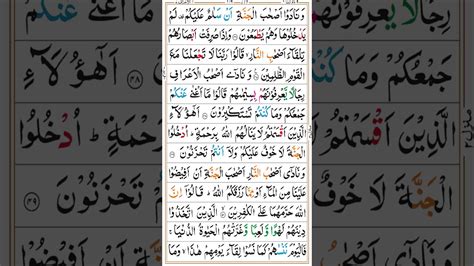 وَنَادَوْا اَصْحٰبَ الْجَنَّةِ اَنْ سَلٰمٌ عَلَيْكُمْ لَمْ
يَدْخُلُوْهَا وَهُمْ يَطْمَعُوْنَ وَاِذَا صُرِفَتْ اَبْصَارُهُمْ
تِلْقَآءَ اَصْحٰبِ النَّارِ قَالُوْا رَبَّنَا لَا تَجْعَلْنَا مَعَ
الْقَوْمِ الظّٰلِمِيْنَ وَنَادٰٓى اَصْحٰبُ الْاَعْرَافِ
رِجَالًا يَّعْرِفُوْنَهُمْ بِسِيْمٰهُمْ قَالُوْا مَآ اَغْنٰى عَنْكُمْ
جَمْعُكُمْ وَمَا كُنْتُمْ تَسْتَكْبِرُوْنَ اَهٰٓؤُلَآءِ
الَّذِيْنَ اَقْسَمْتُمْ لَا يَنَالُهُمُ اللّٰهُ بِرَحْمَةٍ اُدْخُلُوا
الْجَنَّةَ لَا خَوْفٌ عَلَيْكُمْ وَلَآ اَنْتُمْ تَحْزَنُوْنَ
وَنَادٰٓى اَصْحٰبُ النَّارِ اَصْحٰبَ الْجَنَّةِ اَنْ اَفِيْضُوْا
عَلَيْنَا مِنَ الْمَآءِ اَوْ مِمَّا رَزَقَكُمُ اللّٰهُ قَالُوْٓا اِنَّ
اللّٰهَ حَرَّمَهُمَا عَلَى الْكٰفِرِيْنَ الَّذِيْنَ اتَّخَذُوْا
دِيْنَهُمْ لَهْوًا وَّلَعِبًا وَّغَرَّتْهُمُ الْحَيٰوةُ الدُّنْيَا
فَالْيَوْمَ نَنْسٰىهُمْ كَمَا نَسُوْا لِقَآءَ يَوْمِهِمْ هٰذَا وَمَا